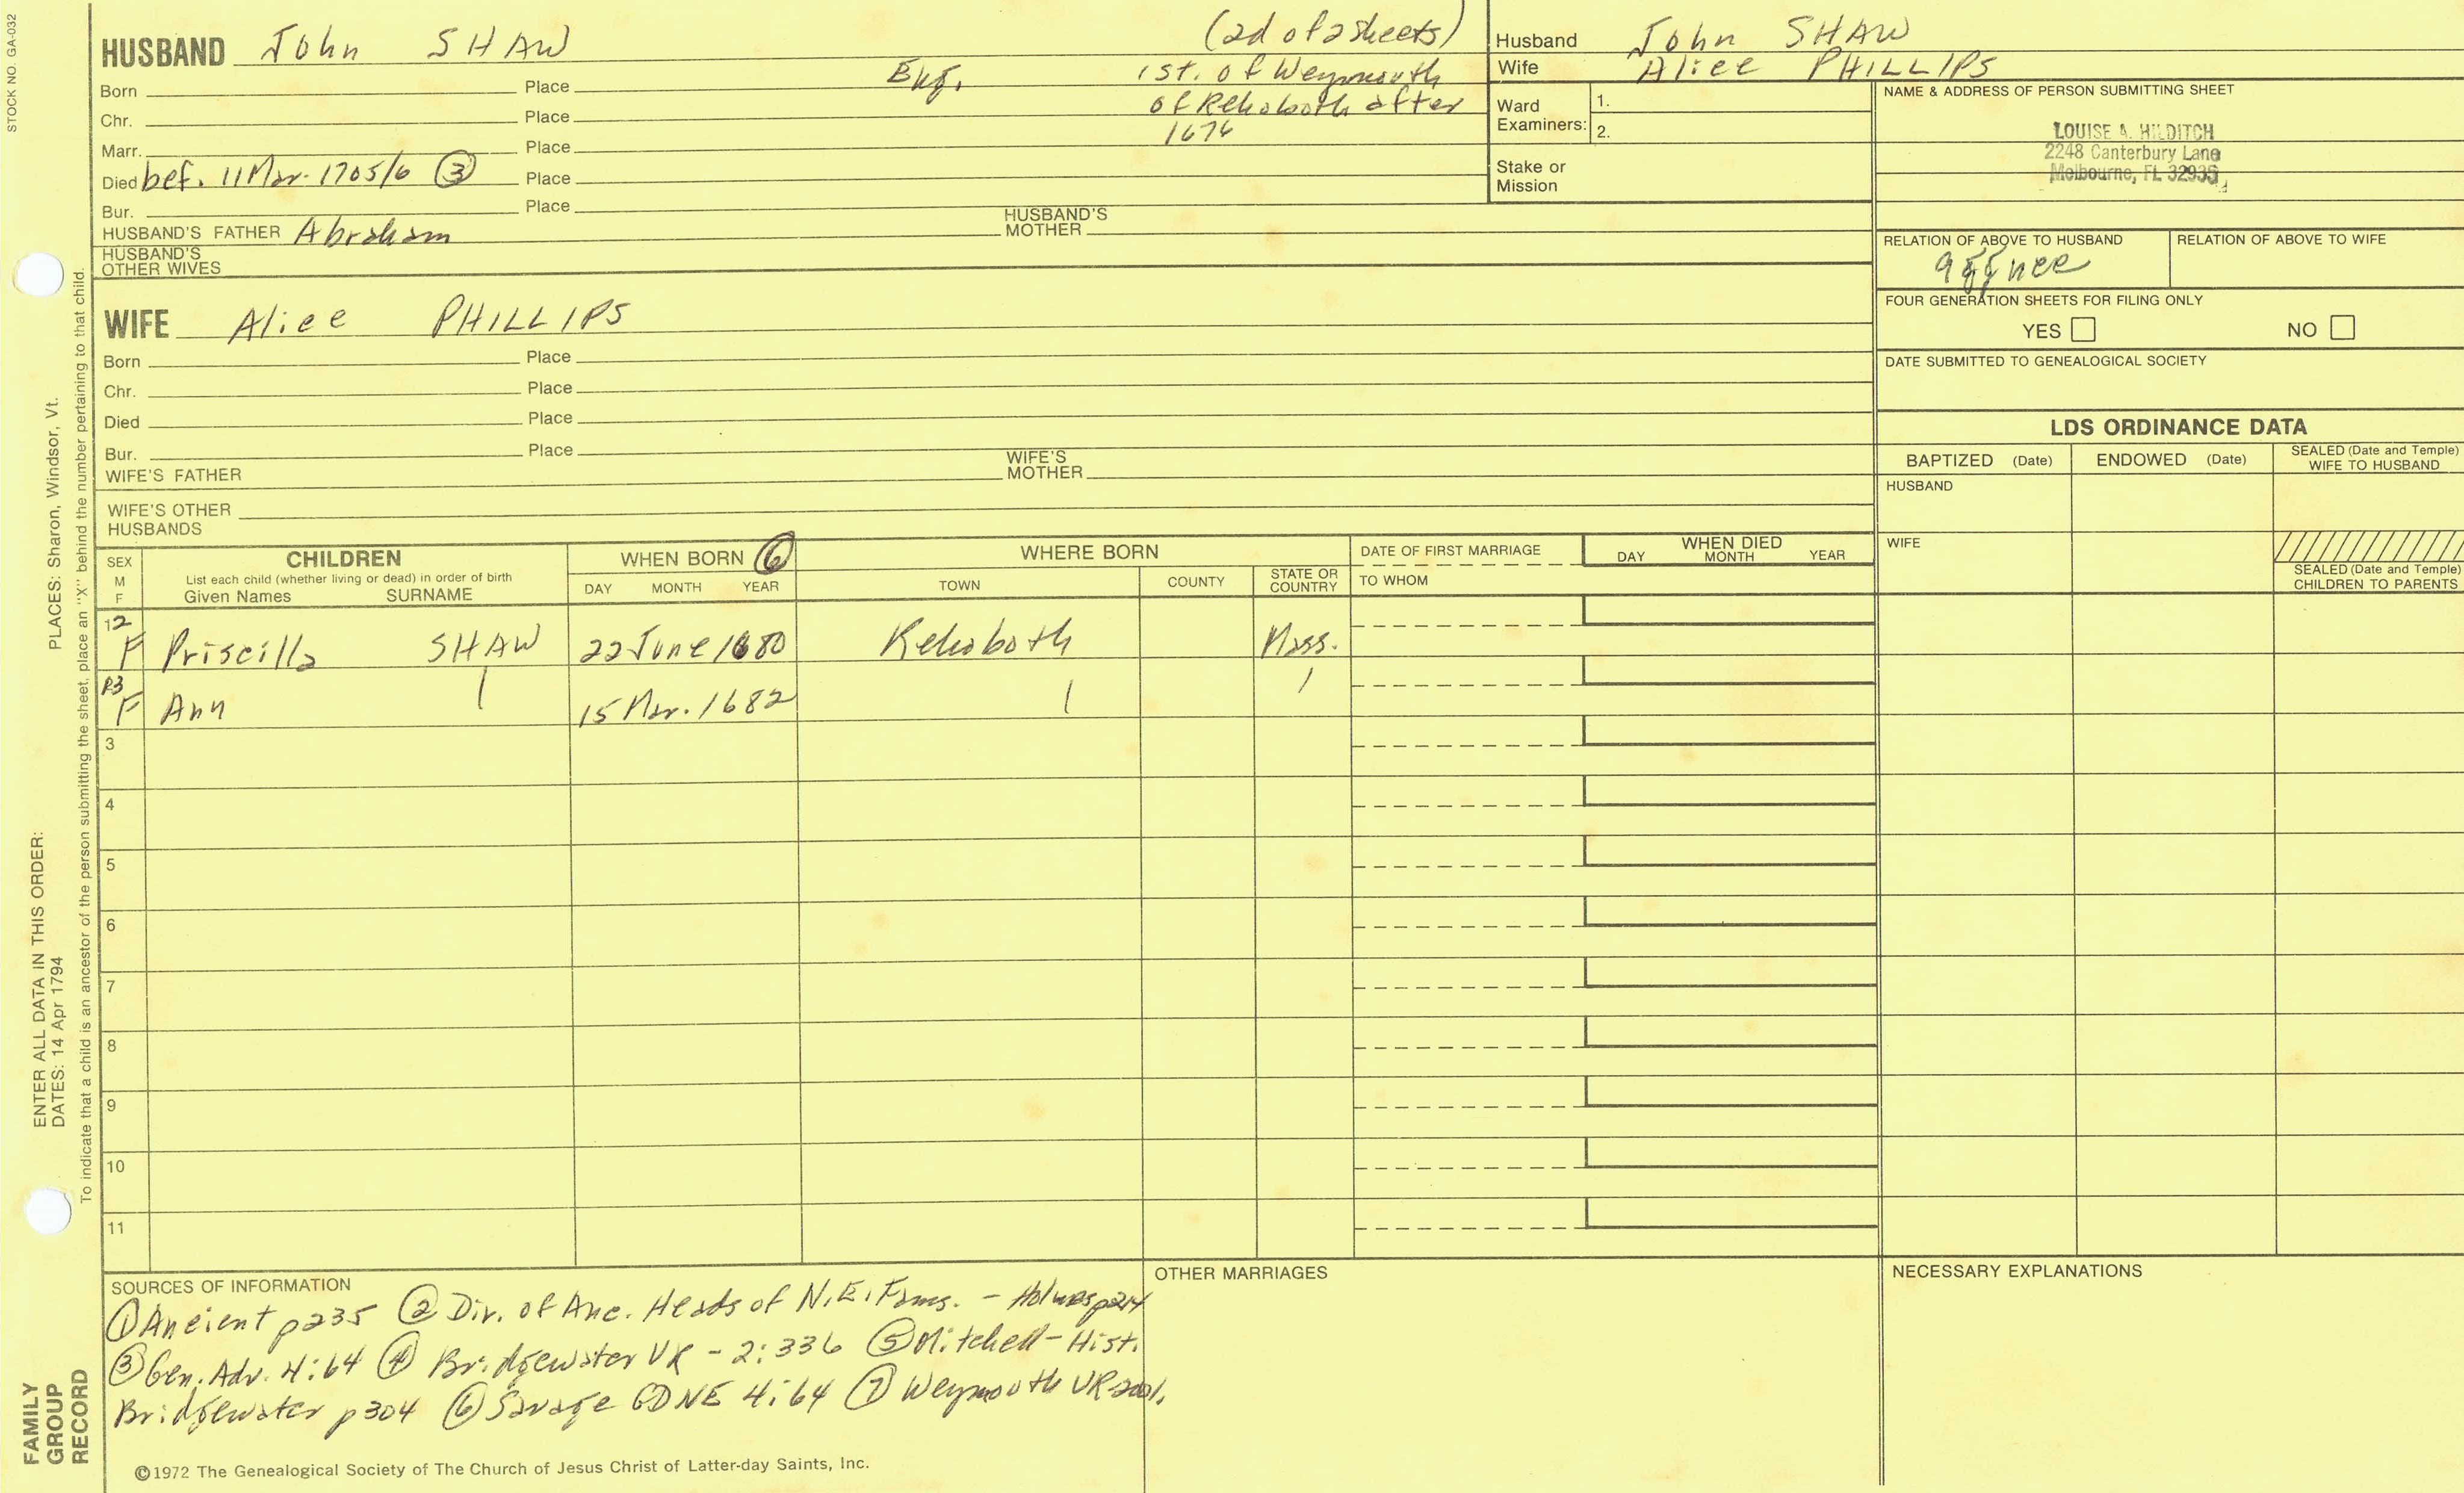 STOCK NO. GA-032
HUSBAND John SHAW (2d of 2 sheets)
Born Place Eng. 1st. of Weymouth
Chr. Place of Rehoboth after
Marr. Place 1676
Died bef. 11 Mar. 1705/6 ③ Place
Bur. Place
HUSBAND'S FATHER Abraham HUSBAND'S MOTHER
HUSBAND'S OTHER WIVES
WIFE Alice PHILLIPS
Born Place
Chr. Place
Died Place
Bur. Place
WIFE'S FATHER WIFE'S MOTHER
WIFE'S OTHER HUSBANDS
Husband John SHAW
Wife Alice PHILLIPS
Ward Examiners: 1.
2.
Stake or Mission
NAME & ADDRESS OF PERSON SUBMITTING SHEET
LOUISE A. HILDITCH
2248 Canterbury Lane
Melbourne, FL 32935
RELATION OF ABOVE TO HUSBAND RELATION OF ABOVE TO WIFE
FOUR GENERATION SHEETS FOR FILING ONLY
YES NO
DATE SUBMITTED TO GENEALOGICAL SOCIETY
LDS ORDINANCE DATA
BAPTIZED (Date) ENDOWED (Date) SEALED (Date and Temple) WIFE TO HUSBAND
HUSBAND
WIFE
SEALED (Date and Temple) CHILDREN TO PARENTS
SEX M F CHILDREN WHEN BORN ⑥ WHERE BORN DATE OF FIRST MARRIAGE WHEN DIED
List each child (whether living or dead) in order of birth
Given Names SURNAME DAY MONTH YEAR TOWN COUNTY STATE OR COUNTRY TO WHOM DAY MONTH YEAR
12
F Priscilla SHAW 22 June 1680 Rehoboth Mass.
13
F Ann 15 Mar. 1682
3
4
5
6
7
8
9
10
11
SOURCES OF INFORMATION
① Ancient p235 ② Dir. of Anc. Heads of N.E. Fams. - Holmes p214
③ Gen. Adv. 4:64 ④ Bridgewater VR - 2:336 ⑤ Mitchell - Hist.
Bridgewater p304 ⑥ Savage GDNE 4:64 ⑦ Weymouth VR
OTHER MARRIAGES
NECESSARY EXPLANATIONS
©1972 The Genealogical Society of The Church of Jesus Christ of Latter-day Saints, Inc.
FAMILY GROUP RECORD
ENTER ALL DATA IN THIS ORDER:
DATES: 14 Apr 1794 PLACES: Sharon, Windsor, Vt.
To indicate that a child is an ancestor of the person submitting the sheet, place an "X" behind the number pertaining to that child.